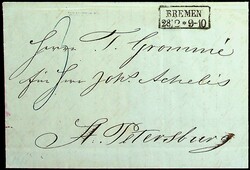 BREMEN
28 2 * 9-10
Herrn T. Grommé
für Herr Johs Achelis
St. Petersburg